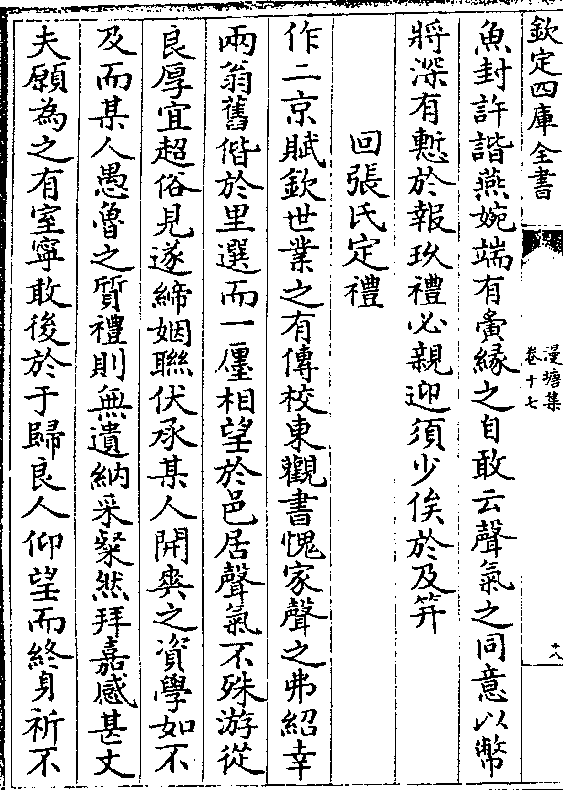 欽定四庫全書
漫塘集
卷十七
十八
魚封許諧燕婉端有夤緣之自敢云聲氣之同意以幣
將深有慙於報玖禮必親迎須少俟於及笄
回張氏定禮
作二京賦欽世業之有傳校東觀書愧家聲之弗紹幸
兩翁舊偕於里選而一廛相望於邑居聲氣不殊游從
良厚宜超俗見遂締姻聯伏承某人開爽之資學如不
及而某人愚魯之質禮則無遺納采粲然拜嘉感甚丈
夫願為之有室寧敢後於于歸良人仰望而終身祈不